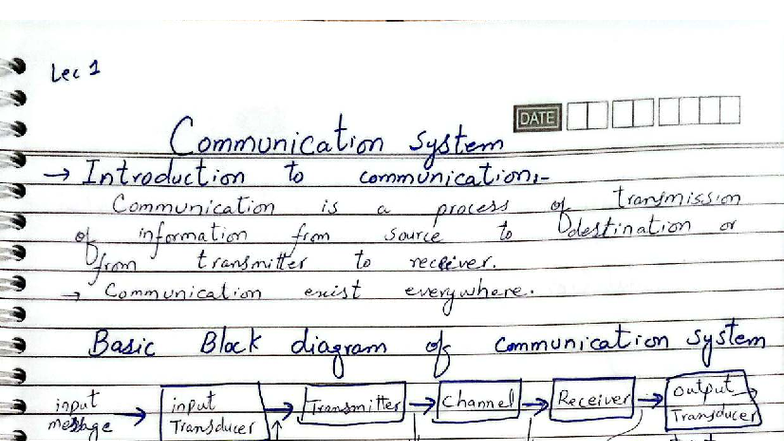 Lec 1
DATE
Communication system
→ Introduction to communication:-
Communication is a process of transmission
of information from source to destination or
from transmitter to receiver.
→ Communication exist everywhere.
Basic Block diagram of communication system
input message → input Transducer → Transmitter → Channel → Receiver → output Transducer